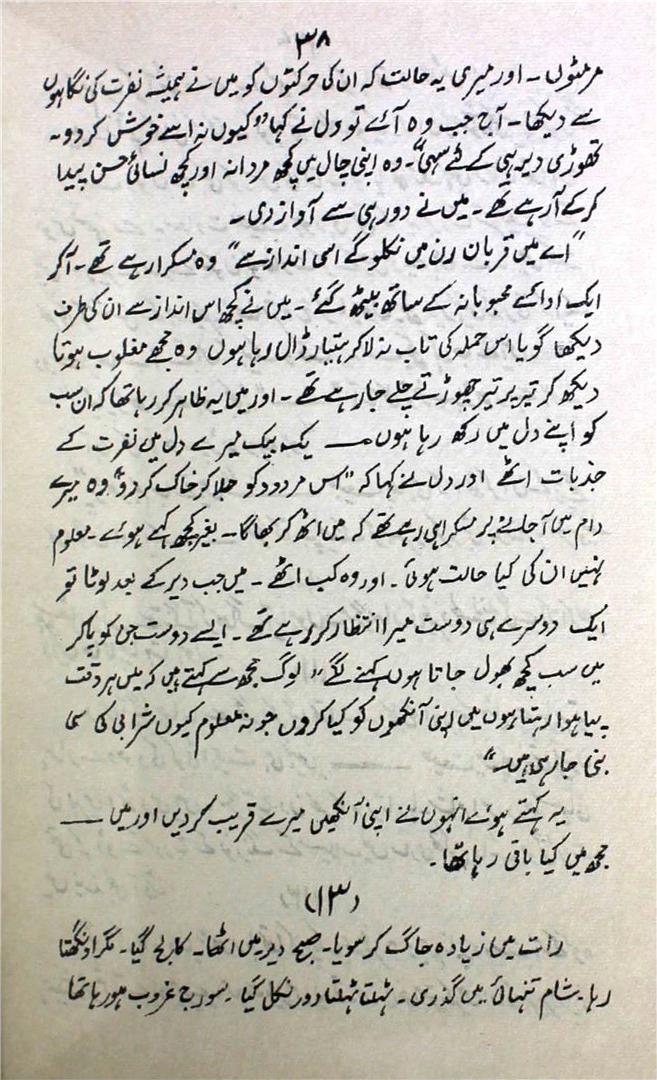 ۳۸
مرمٹوں ۔ اور میری یہ حالت کہ ان کی حرکتوں کو میں نے ہمیشہ نفرت کی نگاہوں
سے دیکھا ۔ آج جب وہ آئے تو دل نے کہا "کیوں نہ اسے خوش کر دو ۔
تھوڑی دیر ہی کے لئے سہی" ۔ وہ اپنی چال میں کچھ مردانہ اور کچھ نسائی حسن پیدا
کر کے آ رہے تھے ۔ میں نے دور ہی سے آواز دی ۔
"اے میں قربان رن میں نکلو گے اسی انداز سے" وہ مسکرا رہے تھے ۔ آ کر
ایک ادائے محبوبانہ کے ساتھ بیٹھ گئے ۔ میں نے کچھ اس انداز سے ان کی طرف
دیکھا گویا اس حملہ کی تاب نہ لا کر ہتیار ڈال رہا ہوں وہ مجھے مغلوب ہوتا
دیکھ کر تیر پر تیر چھوڑتے چلے جا رہے تھے ۔ اور میں یہ ظاہر کر رہا تھا کہ ان سب
کو اپنے دل میں رکھ رہا ہوں ــــ یک بیک میرے دل میں نفرت کے
جذبات اٹھے اور دل نے کہا کہ "اس مردود کو جلا کر خاک کر دو" وہ میرے
دام میں آ جانے پر مسکرا ہی رہے تھے کہ میں اٹھ کر بھاگا ۔ بغیر کچھ کہے ہوئے ۔ معلوم
نہیں ان کی کیا حالت ہوئی ۔ اور وہ کب اٹھے ۔ میں جب دیر کے بعد لوٹا تو
ایک دوسرے ہی دوست میرا انتظار کر رہے تھے ۔ ایسے دوست جن کو پا کر
میں سب کچھ بھول جاتا ہوں کہنے لگے "لوگ مجھ سے کہتے ہیں کہ میں ہر وقت
پیا ہوا رہتا ہوں میں اپنی آنکھوں کو کیا کروں جو نہ معلوم کیوں شرابی کی سی
بنی جا رہی ہیں ۔"
یہ کہتے ہوئے انہوں نے اپنی آنکھیں میرے قریب کر دیں اور میں ــــ
مجھ میں کیا باقی رہا تھا ۔
(۱۳)
رات میں زیادہ جاگ کر سویا ۔ صبح دیر میں اٹھا ۔ کالج گیا ۔ مگر اونگھتا
رہا ۔ شام تنہائی میں گذری ۔ ٹہلتا ٹہلتا دور نکل گیا ۔ سورج غروب ہو رہا تھا